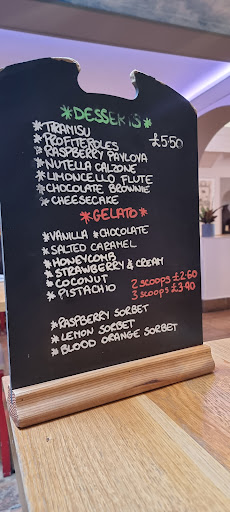 *DESSERTS*
*TIRAMISU
*PROFITEROLES £5.50
*RASPBERRY PAVLOVA
*NUTELLA CALZONE
*LIMONCELLO FLUTE
*CHOCOLATE BROWNIE
*CHEESECAKE
*GELATO*
*VANILLA *CHOCOLATE
*SALTED CARAMEL
*HONEYCOMB
*STRAWBERRY & CREAM
*COCONUT 2 SCOOPS £2.60
*PISTACHIO 3 SCOOPS £3.90
*RASPBERRY SORBET
*LEMON SORBET
*BLOOD ORANGE SORBET